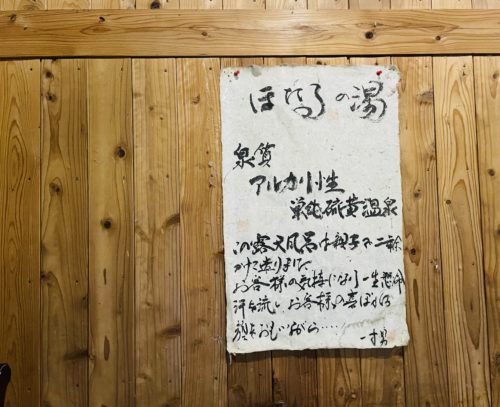 ほたるの湯
泉質
アルカリ性
単純硫黄温泉
この露天風呂は親子で二年
かけ造りました
お客様の気持になり一生懸命
汗を流しお客様の喜ばれる
顔をおもいながら……
一寸男